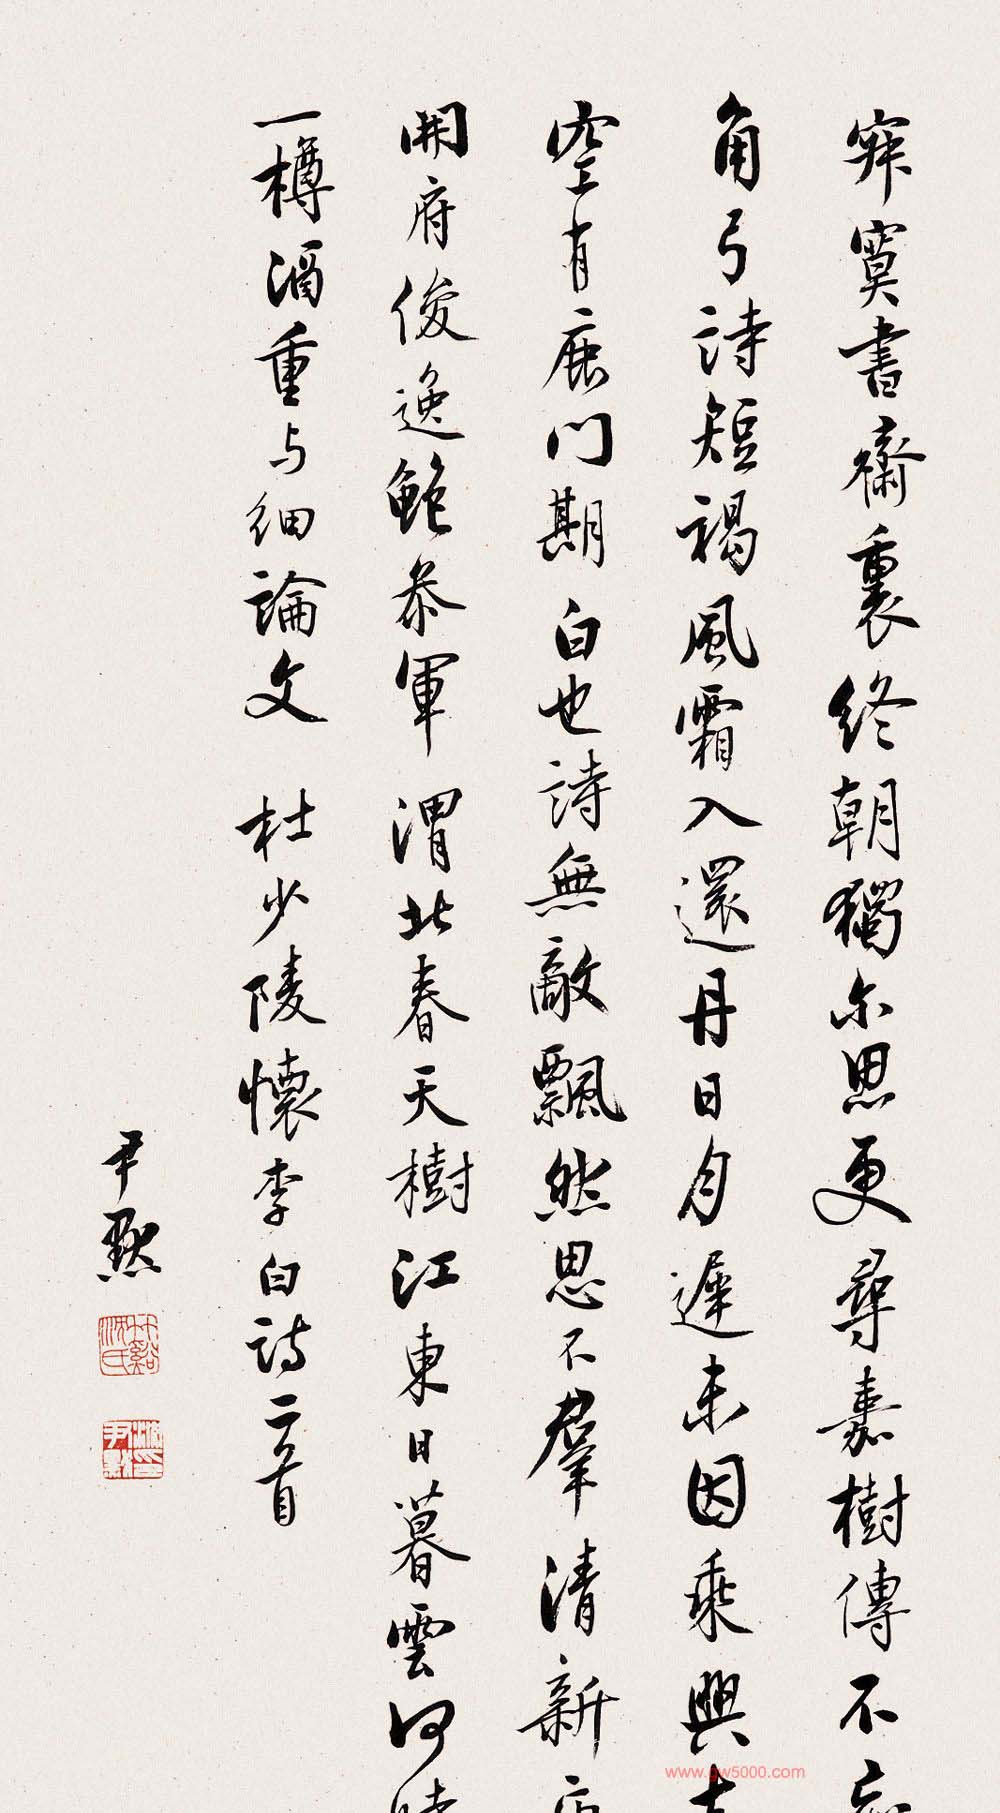 寂寞書齋裏終朝獨尔思更尋嘉樹傳不忘
角弓詩短褐風霜入還丹日月遲未因乘興去
空有鹿門期白也詩無敵飄然思不羣清新庾
開府俊逸鮑參軍渭北春天樹江東日暮雲何時
一樽酒重与細論文 杜少陵懷李白詩二首
尹默
竹谿沈氏
沈尹默印
www.gw5000.com